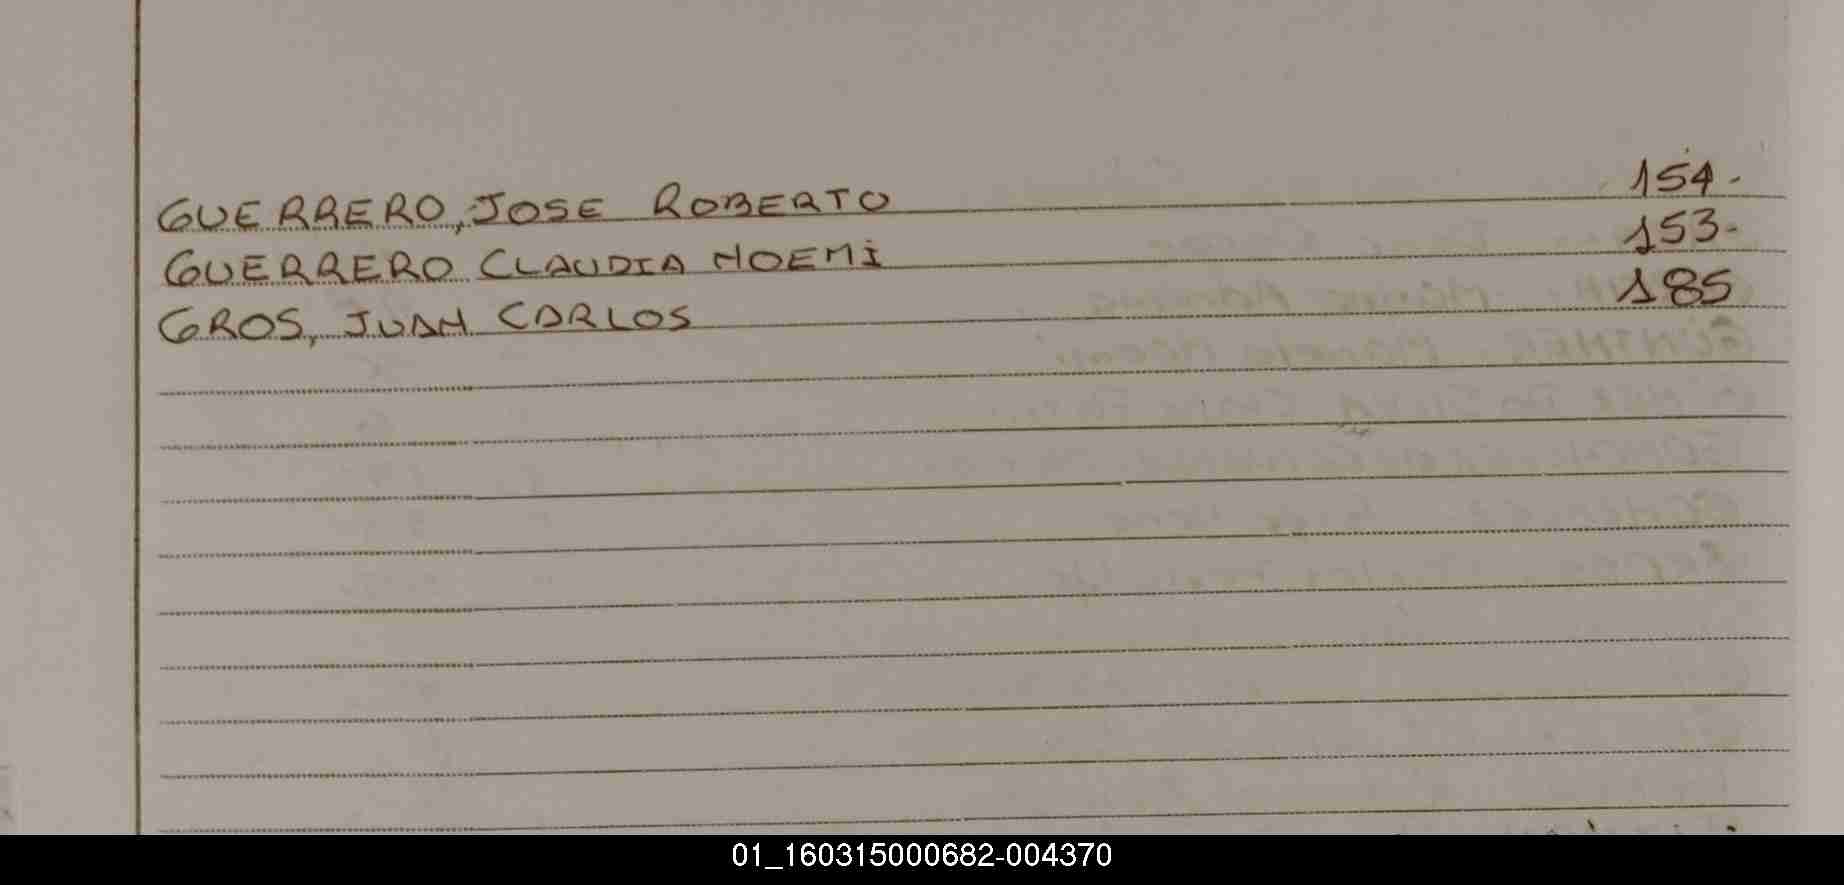 GUERRERO, JOSE ROBERTO 154.-
GUERRERO CLAUDIA NOEMI 153.-
GROS, JUAN CARLOS 185
01_160315000682-004370